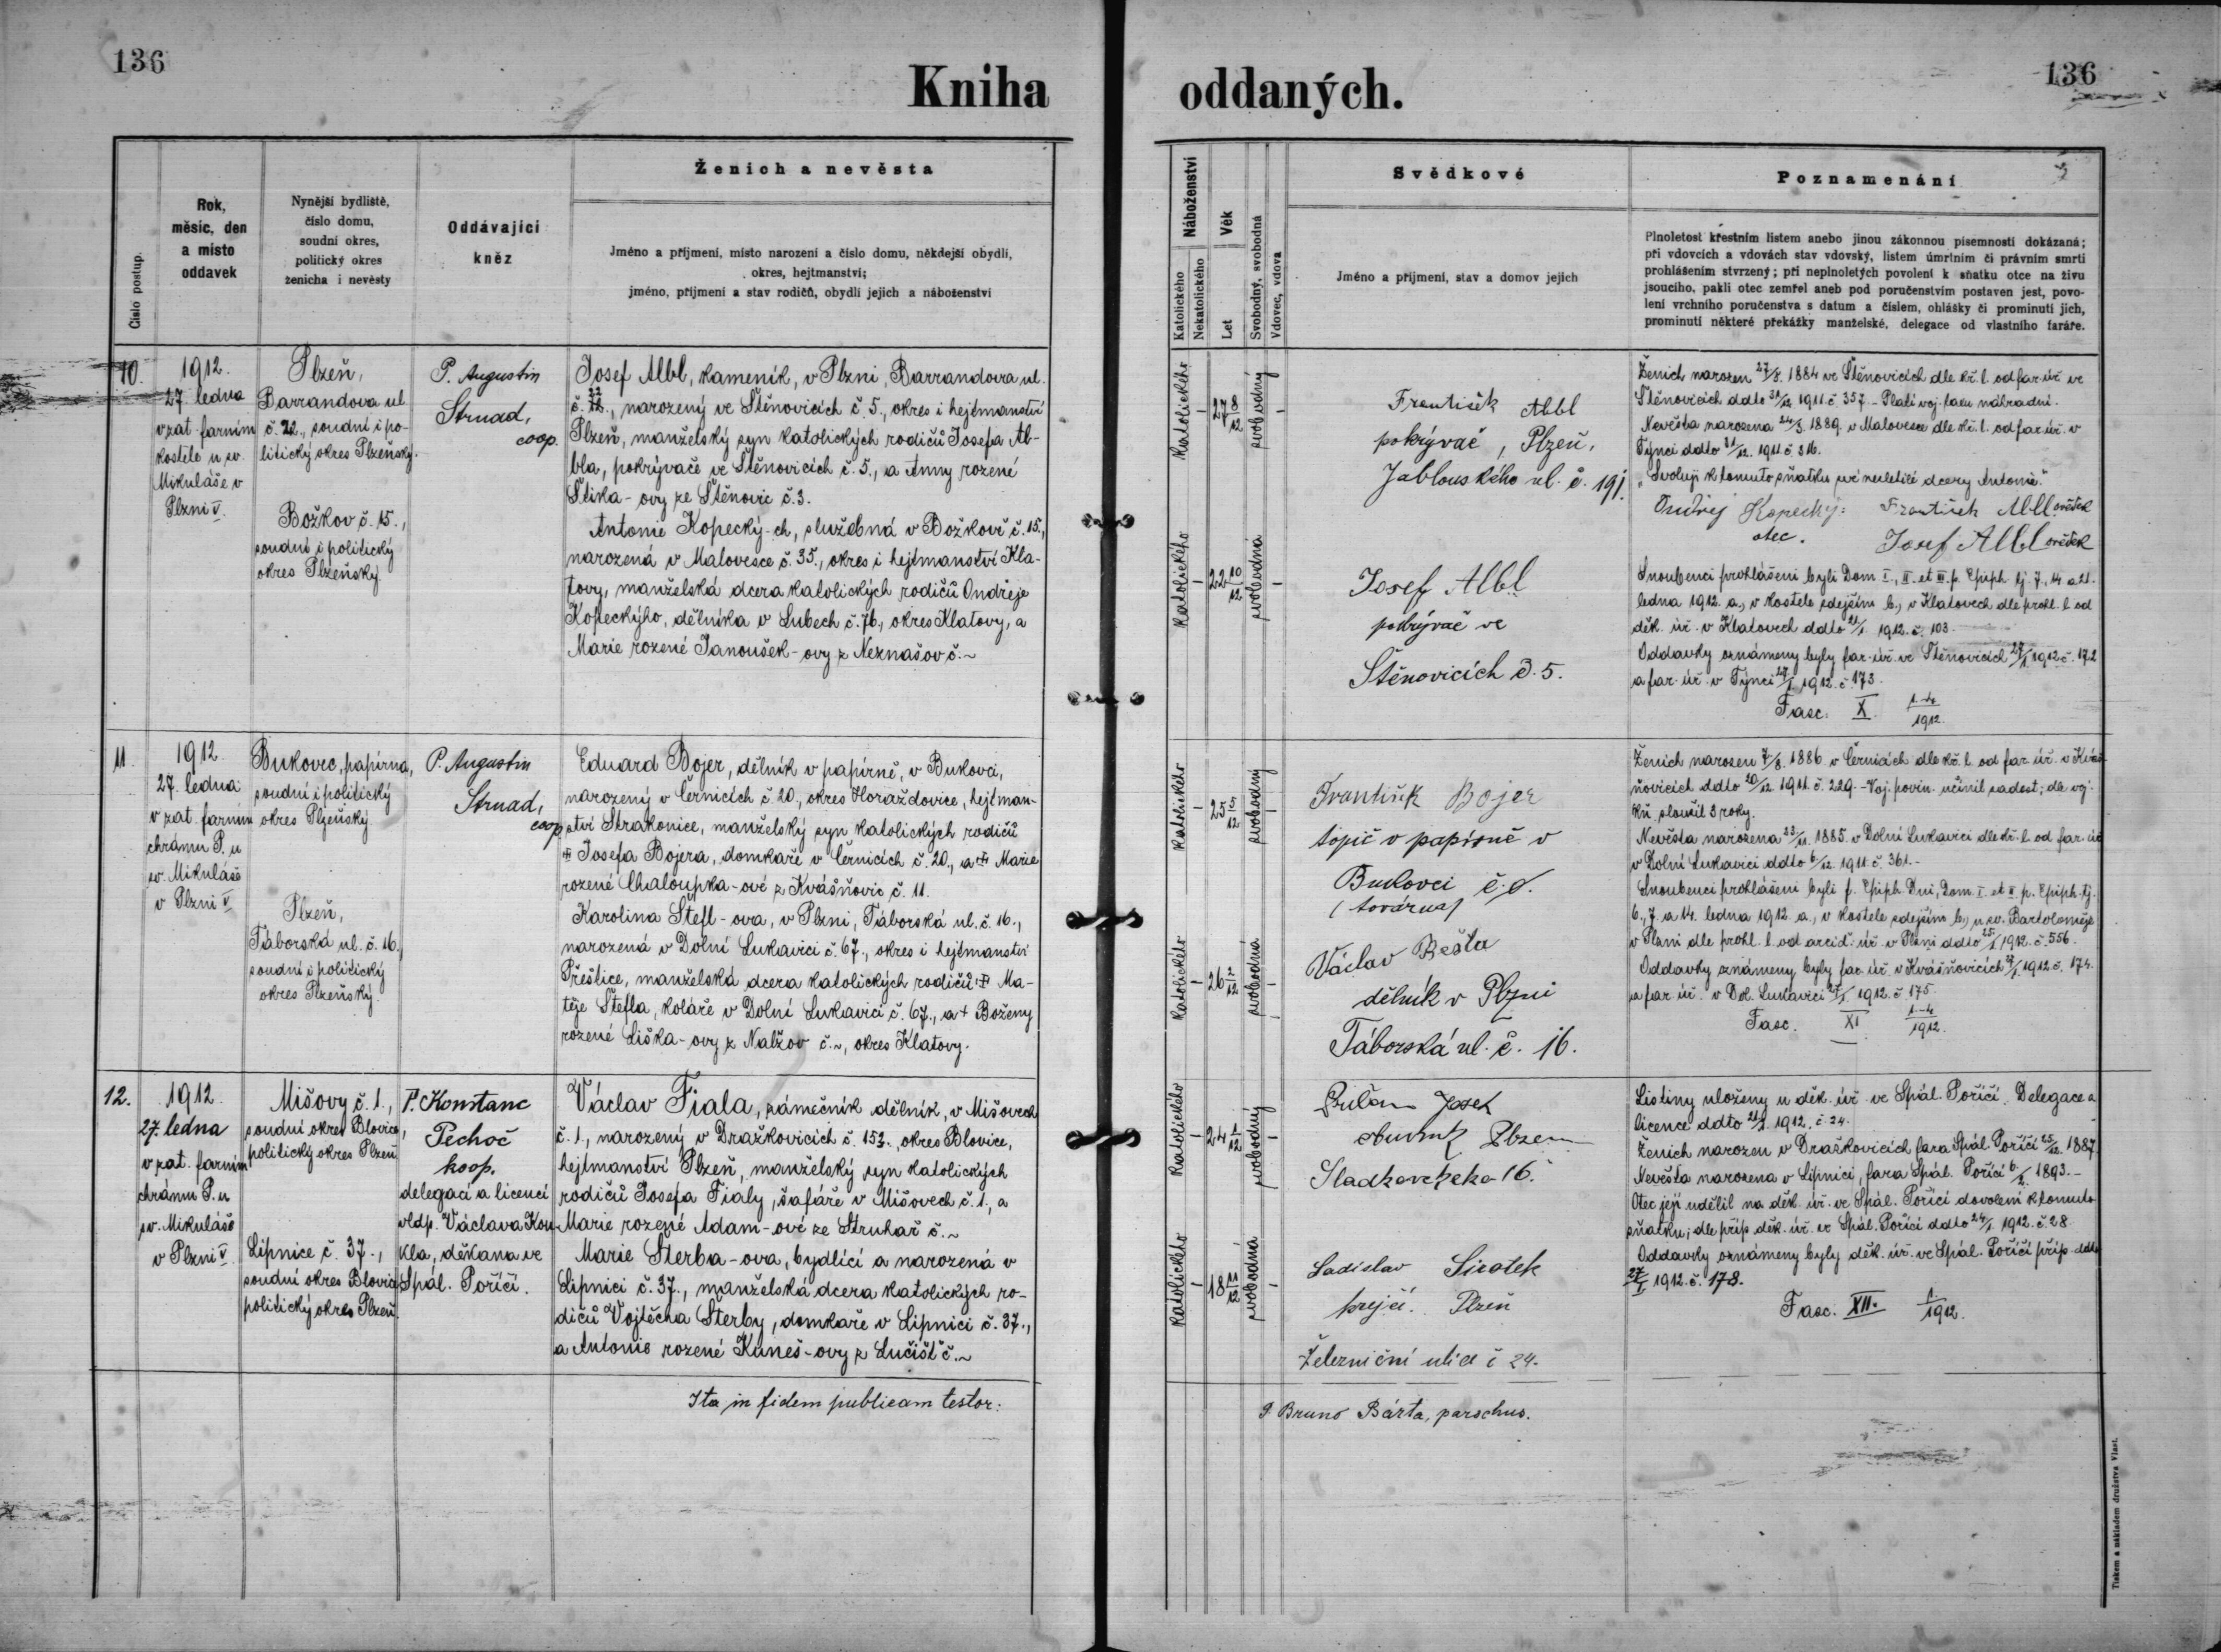 136
Kniha oddaných.
136
Číslo postup.
Rok,
měsíc, den
a místo
oddavek
Nynější bydliště,
číslo domu,
soudní okres,
politický okres
ženicha i nevěsty
Oddávající
kněz
Ženich a nevěsta
Jméno a příjmení, místo narození a číslo domu, někdejší obydlí,
okres, hejtmanství;
jméno, příjmení a stav rodičů, obydlí jejich a náboženství
Náboženství
Katolického
Nekatolického
Věk
Let
Svobodný, svobodná
Vdovec, vdova
Svědkové
Jméno a příjmení, stav a domov jejich
Poznamenání
Plnoletost křestním listem anebo jinou zákonnou písemností dokázaná;
při vdovcích a vdovách stav vdovský, listem úmrtním či právním smrti
prohlášením stvrzený; při neplnoletých povolení k sňatku otce na živu
jsoucího, pakli otec zemřel aneb pod poručenstvím postaven jest, povo-
lení vrchního poručenstva s datum a číslem, ohlášky či prominutí jich,
prominutí některé překážky manželské, delegace od vlastního faráře.
10.
1912.
27. ledna
v zat. farním
kostele u sv.
Mikuláše v
Plzni V.
Plzeň,
Barrandova ul.
č. 22., soudní i po-
litický okres Plzeňský.
Božkov č. 15.,
soudní i politický
okres Plzeňský.
P. Augustin
Strnad,
coop.
Josef Albl, kameník, v Plzni, Barrandova ul.
č. 22., narozený ve Štěnovicích č. 5., okres i hejtmanství
Plzeň, manželský syn katolických rodičů Josefa Al-
bla, pokrývače ve Štěnovicích č. 5., a Anny rozené
Šlika-ovy ze Štěnovic č. 3.
Antonie Kopecký-ch, služebná v Božkově č. 15.,
narozená v Malovesce č. 35., okres i hejtmanství Kla-
tovy, manželská dcera katolických rodičů Ondřeje
Kopeckýho, dělníka v Lubech č. 76., okres Klatovy, a
Marie rozené Janoušek-ovy z Neznašov č. ~
Katolického
–
27 8/12
svobodný
–
Katolického
–
22 10/12
svobodná
–
František Albl
pokrývač, Plzeň,
Jablonského ul. č. 191.
Josef Albl
pokrývač ve
Štěnovicích č. 5.
Ženich narozen 27/5. 1884 ve Štěnovicích dle kř. l. od far. úř. ve
Štěnovicích ddto 31/12. 1911. č. 357. – Platí voj. taxu náhradní.
Nevěsta narozena 24/3. 1889. v Malovesce dle kř. l. od far. úř. v
Týnci ddto 31/12. 1911. č. 316.
"Svoluji k tomuto sňatku své nezletilé dcery Antonie."
Ondřej Kopecký: František Albl svědek
otec. Josef Albl svědek
Snoubenci prohlášeni byli Dom. I., II. et III. p. Epiph. tj. 7., 14 a 21.
ledna 1912. a., v kostele zdejším b., v Klatovech dle prohl. l. od
děk. úř. v Klatovech ddto 21/I. 1912. č. 103.
Oddavky oznámeny byly far. úř. ve Štěnovicích 27/I. 1912 č. 172
a far. úř. v Týnci 27/I. 1912. č. 173.
Fasc. X. 1–4/1912.
11.
1912.
27. ledna
v zat. farním
chrámu P. u
sv. Mikuláše
v Plzni V.
Bukovec, papírna,
soudní i politický
okres Plzeňský.
Plzeň,
Táborská ul. č. 16.,
soudní i politický
okres Plzeňský.
P. Augustin
Strnad,
coop.
Eduard Bojer, dělník v papírně, v Bukovci,
narozený v Černicích č. 20., okres Horažďovice, hejtman-
ství Strakonice, manželský syn katolických rodičů
† Josefa Bojera, domkaře v Černicích č. 20., a † Marie
rozené Chaloupka-ové z Kvášňovic č. 11.
Karolina Štefl-ova, v Plzni, Táborská ul. č. 16.,
narozená v Dolní Lukavici č. 67., okres i hejtmanství
Přeštice, manželská dcera katolických rodičů † Ma-
těje Štefla, koláře v Dolní Lukavici č. 67., a † Boženy
rozené Liška-ovy z Nalžov č. ~, okres Klatovy.
Katolického
–
25 5/12
svobodný
–
Katolického
–
26 2/12
svobodná
–
František Bojer
topič v papírně v
Bukovci č. 8.
(továrna)
Václav Bešta
dělník v Plzni
Táborská ul. č. 16.
Ženich narozen 7/8. 1886. v Černicích dle kř. l. od far. úř. v Kváš-
ňovicích ddto 20/12. 1911. č. 229. – Voj. povin. učinil zadost; dle voj.
kn. sloužil 3 roky.
Nevěsta narozena 23/11. 1885. v Dolní Lukavici dle kř. l. od far. úř.
v Dolní Lukavici ddto 6/12. 1911. č. 361. –
Snoubenci prohlášeni byli f. Epiph. Dni, Dom. I. et II. p. Epiph. tj.
6., 7. a 14. ledna 1912. a., v kostele zdejším b., u sv. Bartoloměje
v Plzni dle prohl. l. od arcid. úř. v Plzni ddto 25/I. 1912. č. 556.
Oddavky oznámeny byly far. úř. v Kvášňovicích 27/I. 1912 č. 174.
a far. úř. v Dol. Lukavici 27/I. 1912. č. 175.
Fasc. XI 1–4/1912.
12.
1912.
27. ledna
v zat. farním
chrámu P. u
sv. Mikuláše
v Plzni V.
Mišovy č. 1.,
soudní okres Blovice,
politický okres Plzeň
Lipnice č. 37.,
soudní okres Blovice
politický okres Plzeň.
P. Konstanc
Pechoč
koop.
delegací a licencí
vldp. Václava Kou-
kla, děkana ve
Spál. Poříčí.
Václav Fiala, zámečník dělník, v Mišovech
č. 1., narozený v Draškovicích č. 153., okres Blovice,
hejtmanství Plzeň, manželský syn katolických
rodičů Josefa Fialy, šafáře v Mišovech č. 1., a
Marie rozené Adam-ové ze Struhař č. ~
Marie Šterba-ova, bydlící a narozená v
Lipnici č. 37., manželská dcera katolických ro-
dičů Vojtěcha Šterby, domkaře v Lipnici č. 37.,
a Antonie rozené Kuneš-ovy z Lučišť č. ~
Katolického
–
24 1/12
svobodný
–
Katolického
–
18 11/12
svobodná
–
Josef
obuvník Plzeň
Sladkovského 16.
Ladislav Sirotek
krejčí. Plzeň
Železniční ulice č 24.
Listiny uloženy u děk. úř. ve Spál. Poříčí. Delegace a
licence ddto 21/I. 1912. č. 24.
Ženich narozen v Draškovicích fara Spál. Poříčí 25/12. 1887.
Nevěsta narozena v Lipnici, fara Spál. Poříčí 6/2. 1893. –
Otec její udělil na děk. úř. ve Spál. Poříčí dovolení k tomuto
sňatku; dle příp. děk. úř. ve Spál. Poříčí ddto 24/I. 1912. č. 28.
Oddavky oznámeny byly děk. úř. ve Spál. Poříčí příp. ddto
27/I. 1912. č. 178.
Fasc. XII. 1./1912.
Ita in fidem publicam testor:
P. Bruno Bárta, parochus.
Tiskem a nákladem družstva Vlast.